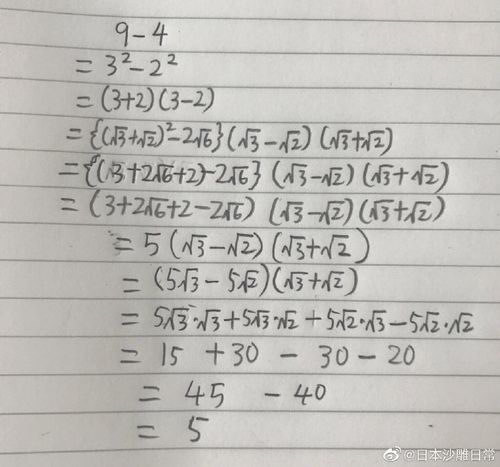 9-4
=3²-2²
=(3+2)(3-2)
={(√3+√2)²-2√6}(√3-√2)(√3+√2)
={(3+2√6+2)-2√6}(√3-√2)(√3+√2)
=(3+2√6+2-2√6)(√3-√2)(√3+√2)
=5(√3-√2)(√3+√2)
=(5√3-5√2)(√3+√2)
=5√3·√3+5√3·√2+5√2·√3-5√2·√2
=15+30-30-20
=45-40
=5
@日本沙雕日常